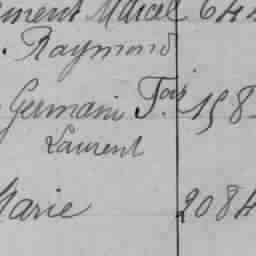 ment Marcel 644
. Raymond
Germain Fois. 158
Laurent
Marie 2084